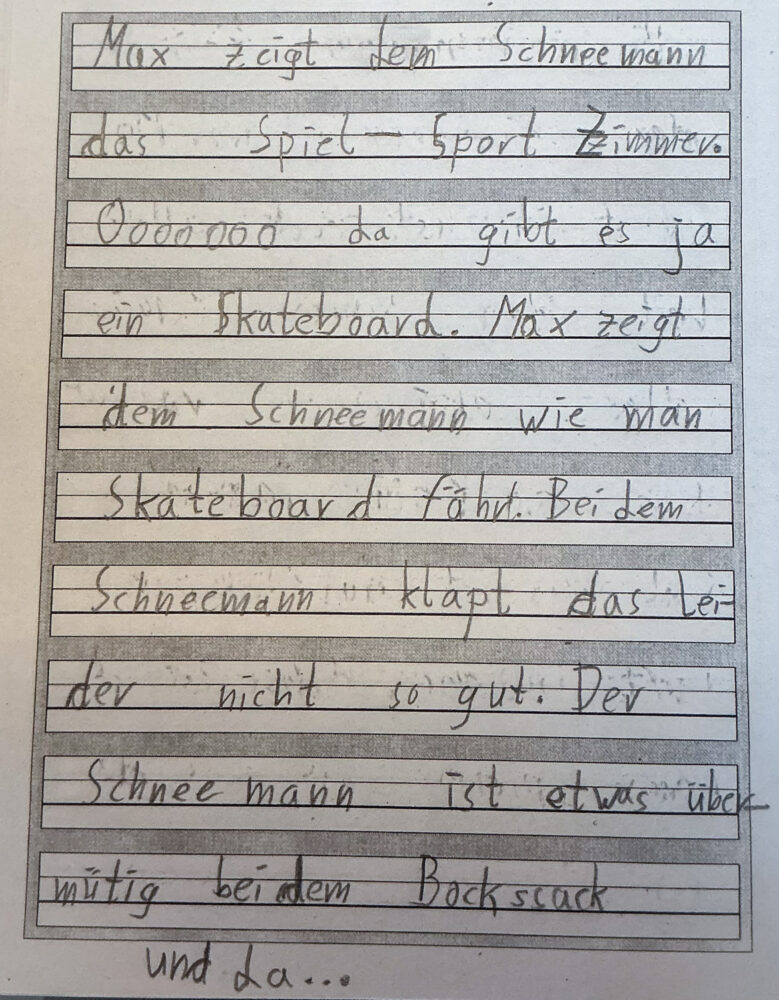 Max zeigt dem Schneemann
das Spiel-Sport Zimmer.
Ooooooo da gibt es ja
ein Skateboard. Max zeigt
dem Schneemann wie man
Skateboard fährt. Bei dem
Schneemann klapt das lei-
der nicht so gut. Der
Schneemann ist etwas über-
mütig bei dem Bockssack
und da...